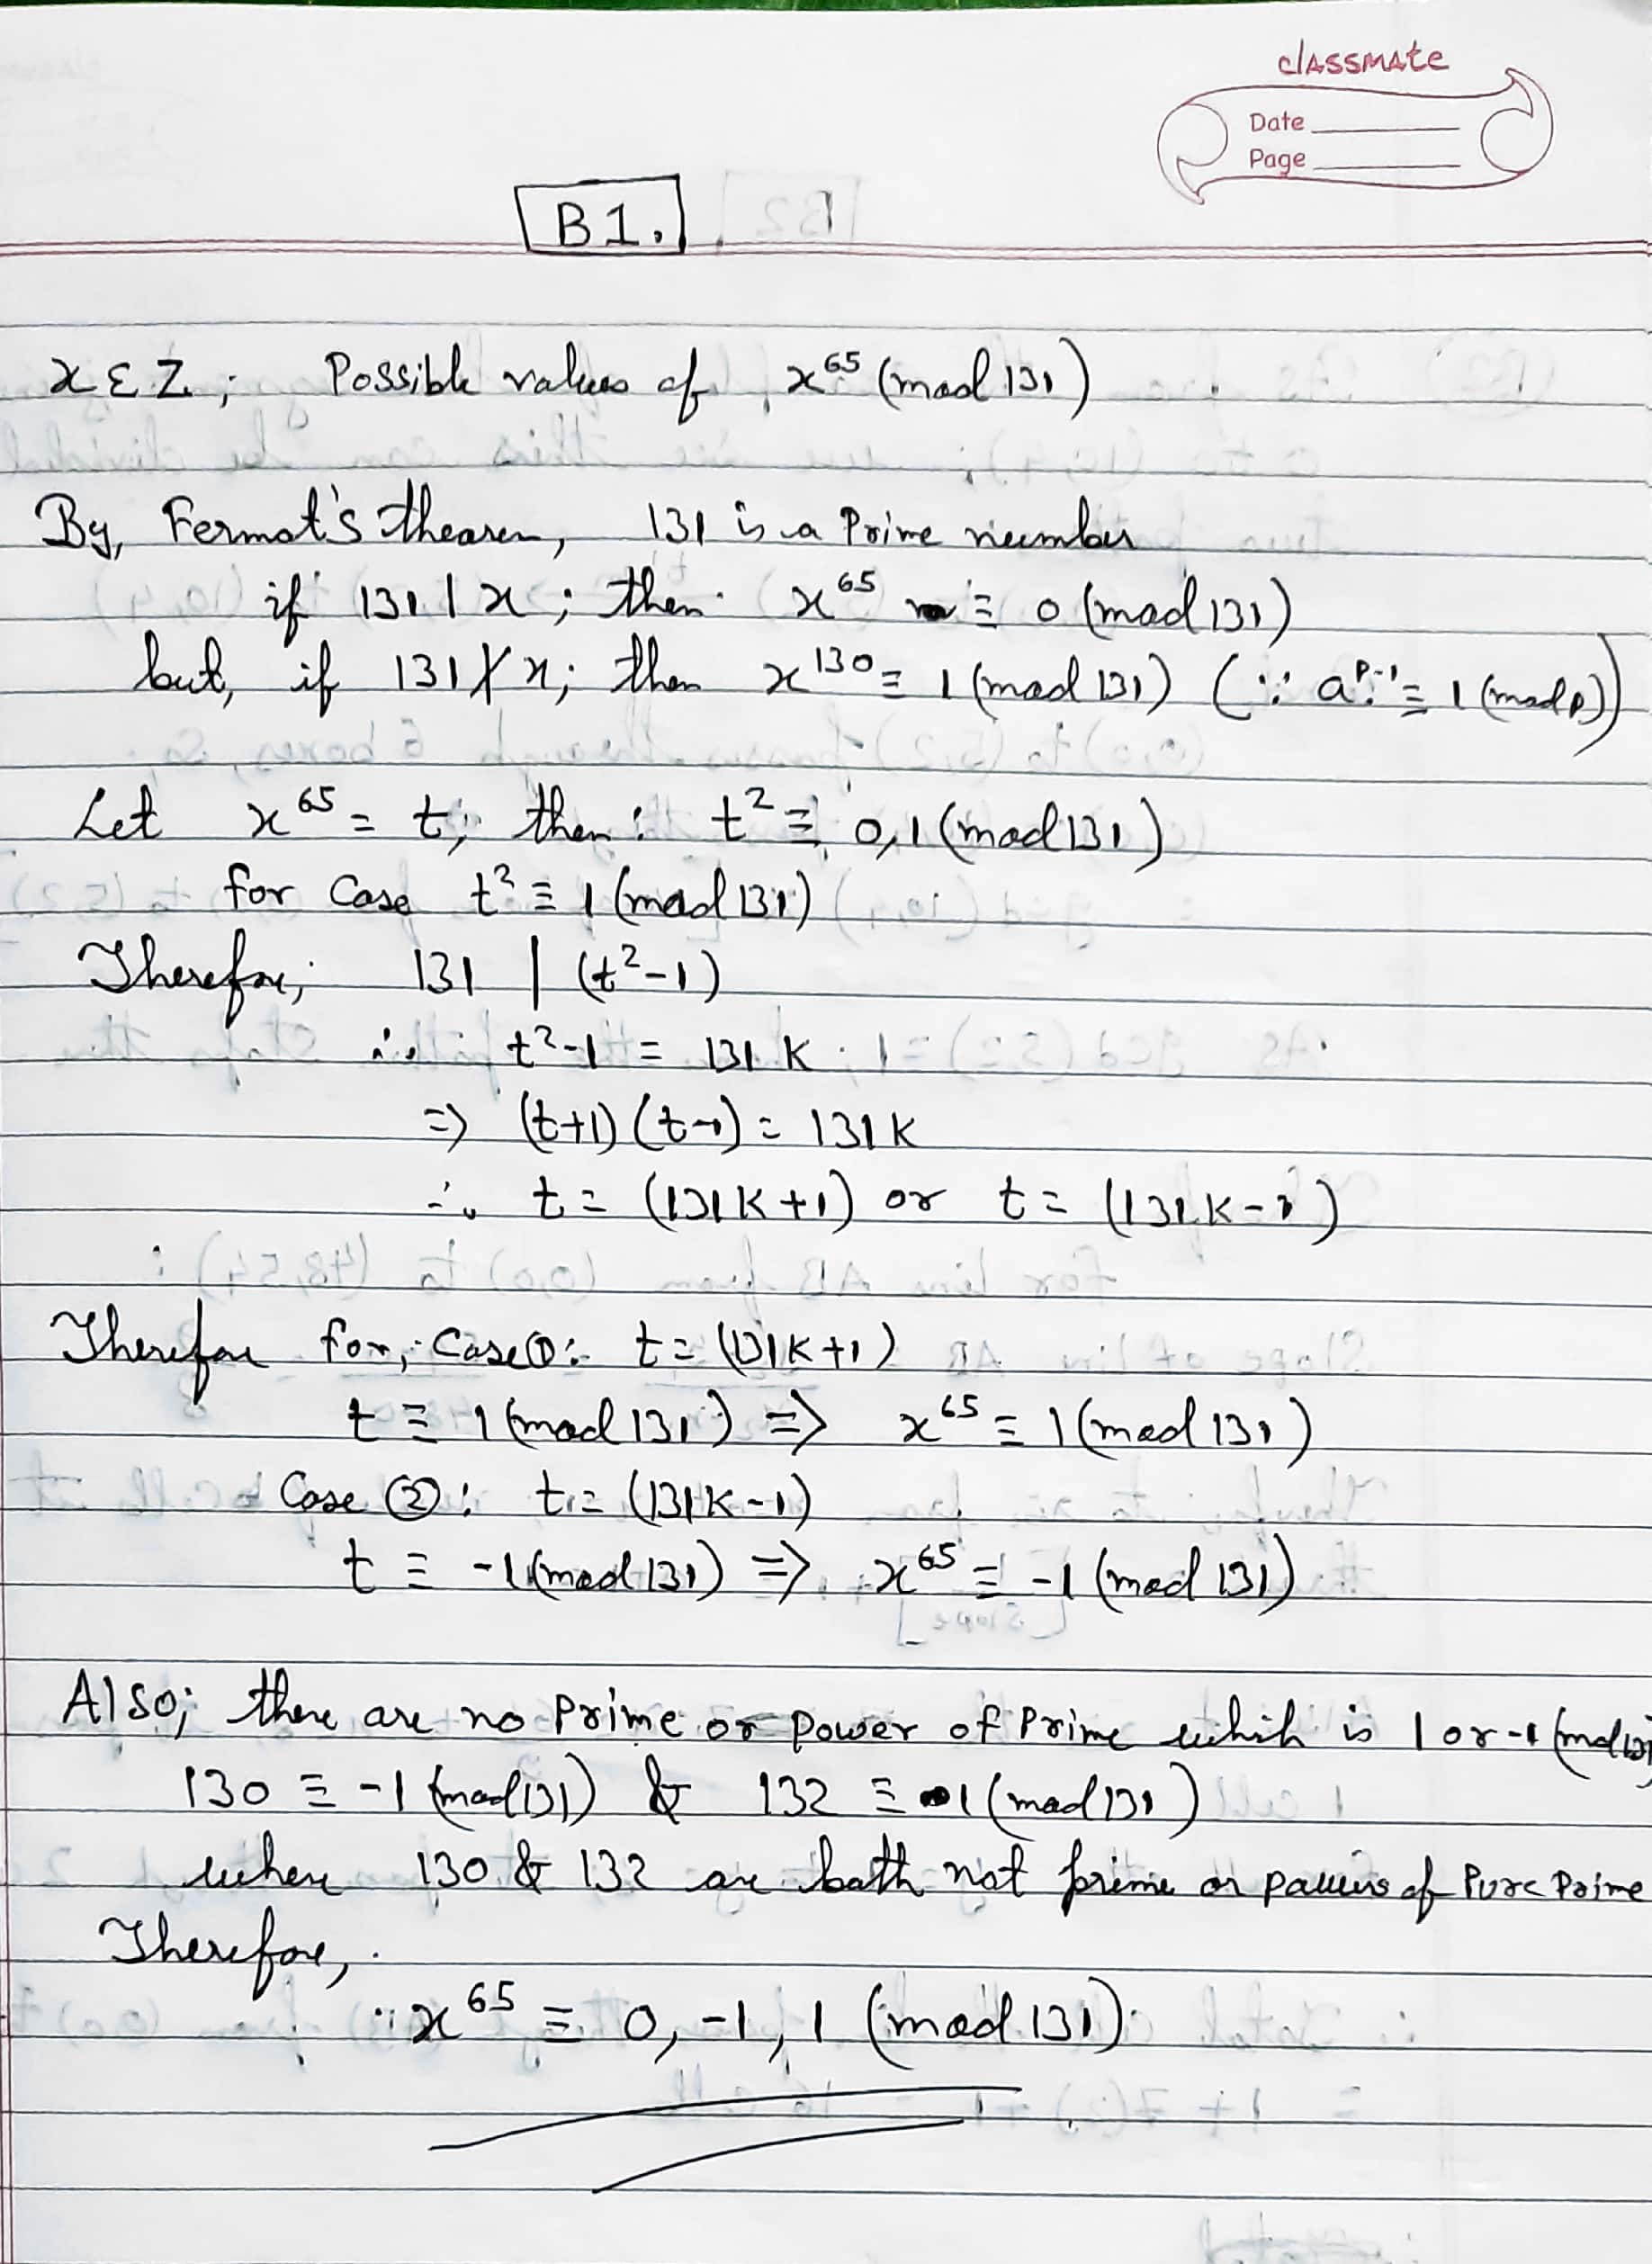 classmate
Date
Page
B1.
x ε Z ; Possible values of x^65 (mod 131)
By, Fermat's thearem, 131 is a Prime number
if 131 | x ; then x^65 ≡ 0 (mod 131)
but, if 131 ∤ x; then x^130 ≡ 1 (mod 131) (∵ a^p-1 ≡ 1 (mod p))
Let x^65 = t; then: t^2 ≡ 0,1 (mod 131)
for Case t^2 ≡ 1 (mod 131)
Therefore; 131 | (t^2-1)
i.e. t^2-1 = 131 K
=> (t+1) (t-1) = 131K
∴ t = (131K+1) or t = (131K-1)
Therefore for, Case ①: t = (131K+1)
t ≡ 1 (mod 131) => x^65 ≡ 1 (mod 131)
Case ②: t = (131K-1)
t ≡ -1 (mod 131) => x^65 ≡ -1 (mod 131)
Also; there are no Prime or power of Prime which is 1 or -1 (mod 131)
130 ≡ -1 (mod 131) & 132 ≡ 1 (mod 131)
where 130 & 132 are both not prime or powers of Pure Prime
Therefore,
∴ x^65 ≡ 0, -1, 1 (mod 131)